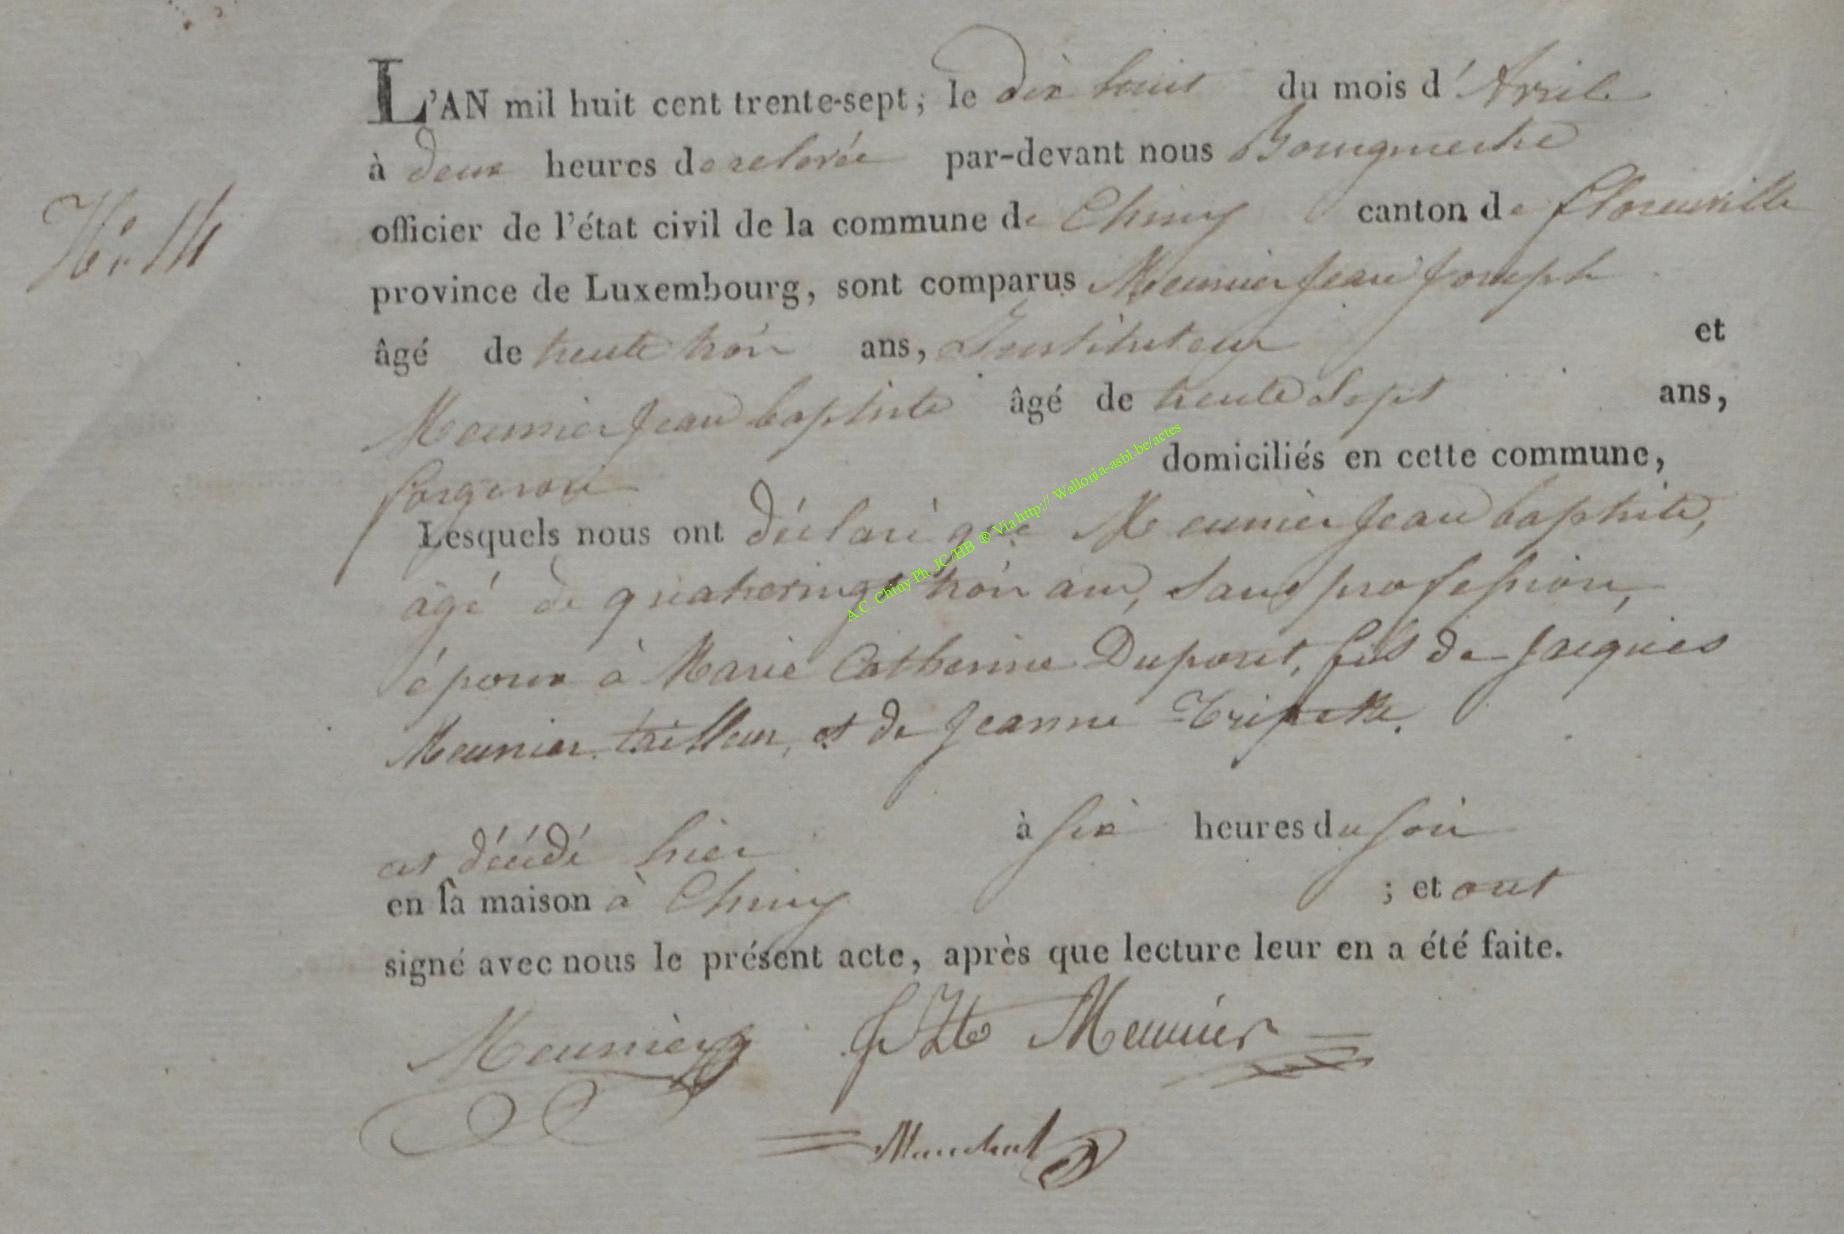 L'AN mil huit cent trente-sept, le dix huit du mois d'Avril
à deux heures de relevée par-devant nous Bourgmestre
N.° 14
officier de l'état civil de la commune de Chiny canton de florenville
province de Luxembourg, sont comparus Meunier Jean Joseph
âgé de trente trois ans, Instituteur et
Meunier Jean baptiste âgé de trente Sept ans,
forgeron domiciliés en cette commune,
Lesquels nous ont déclaré que Meunier Jean baptiste,
âgé de quatrevingt trois ans, sans profession,
époux à Marie Catherine Dupont, fils de Jacques
Meunier tailleur, et de Jeanne
est décédé hier à six heures du soir
en sa maison à Chiny ; et ont
signé avec nous le présent acte, après que lecture leur en a été faite.
Meunier J Bte Meunier
A.C. Chiny Ph. JC/HB ® Via http:// Wallonia-asbl.be/actes